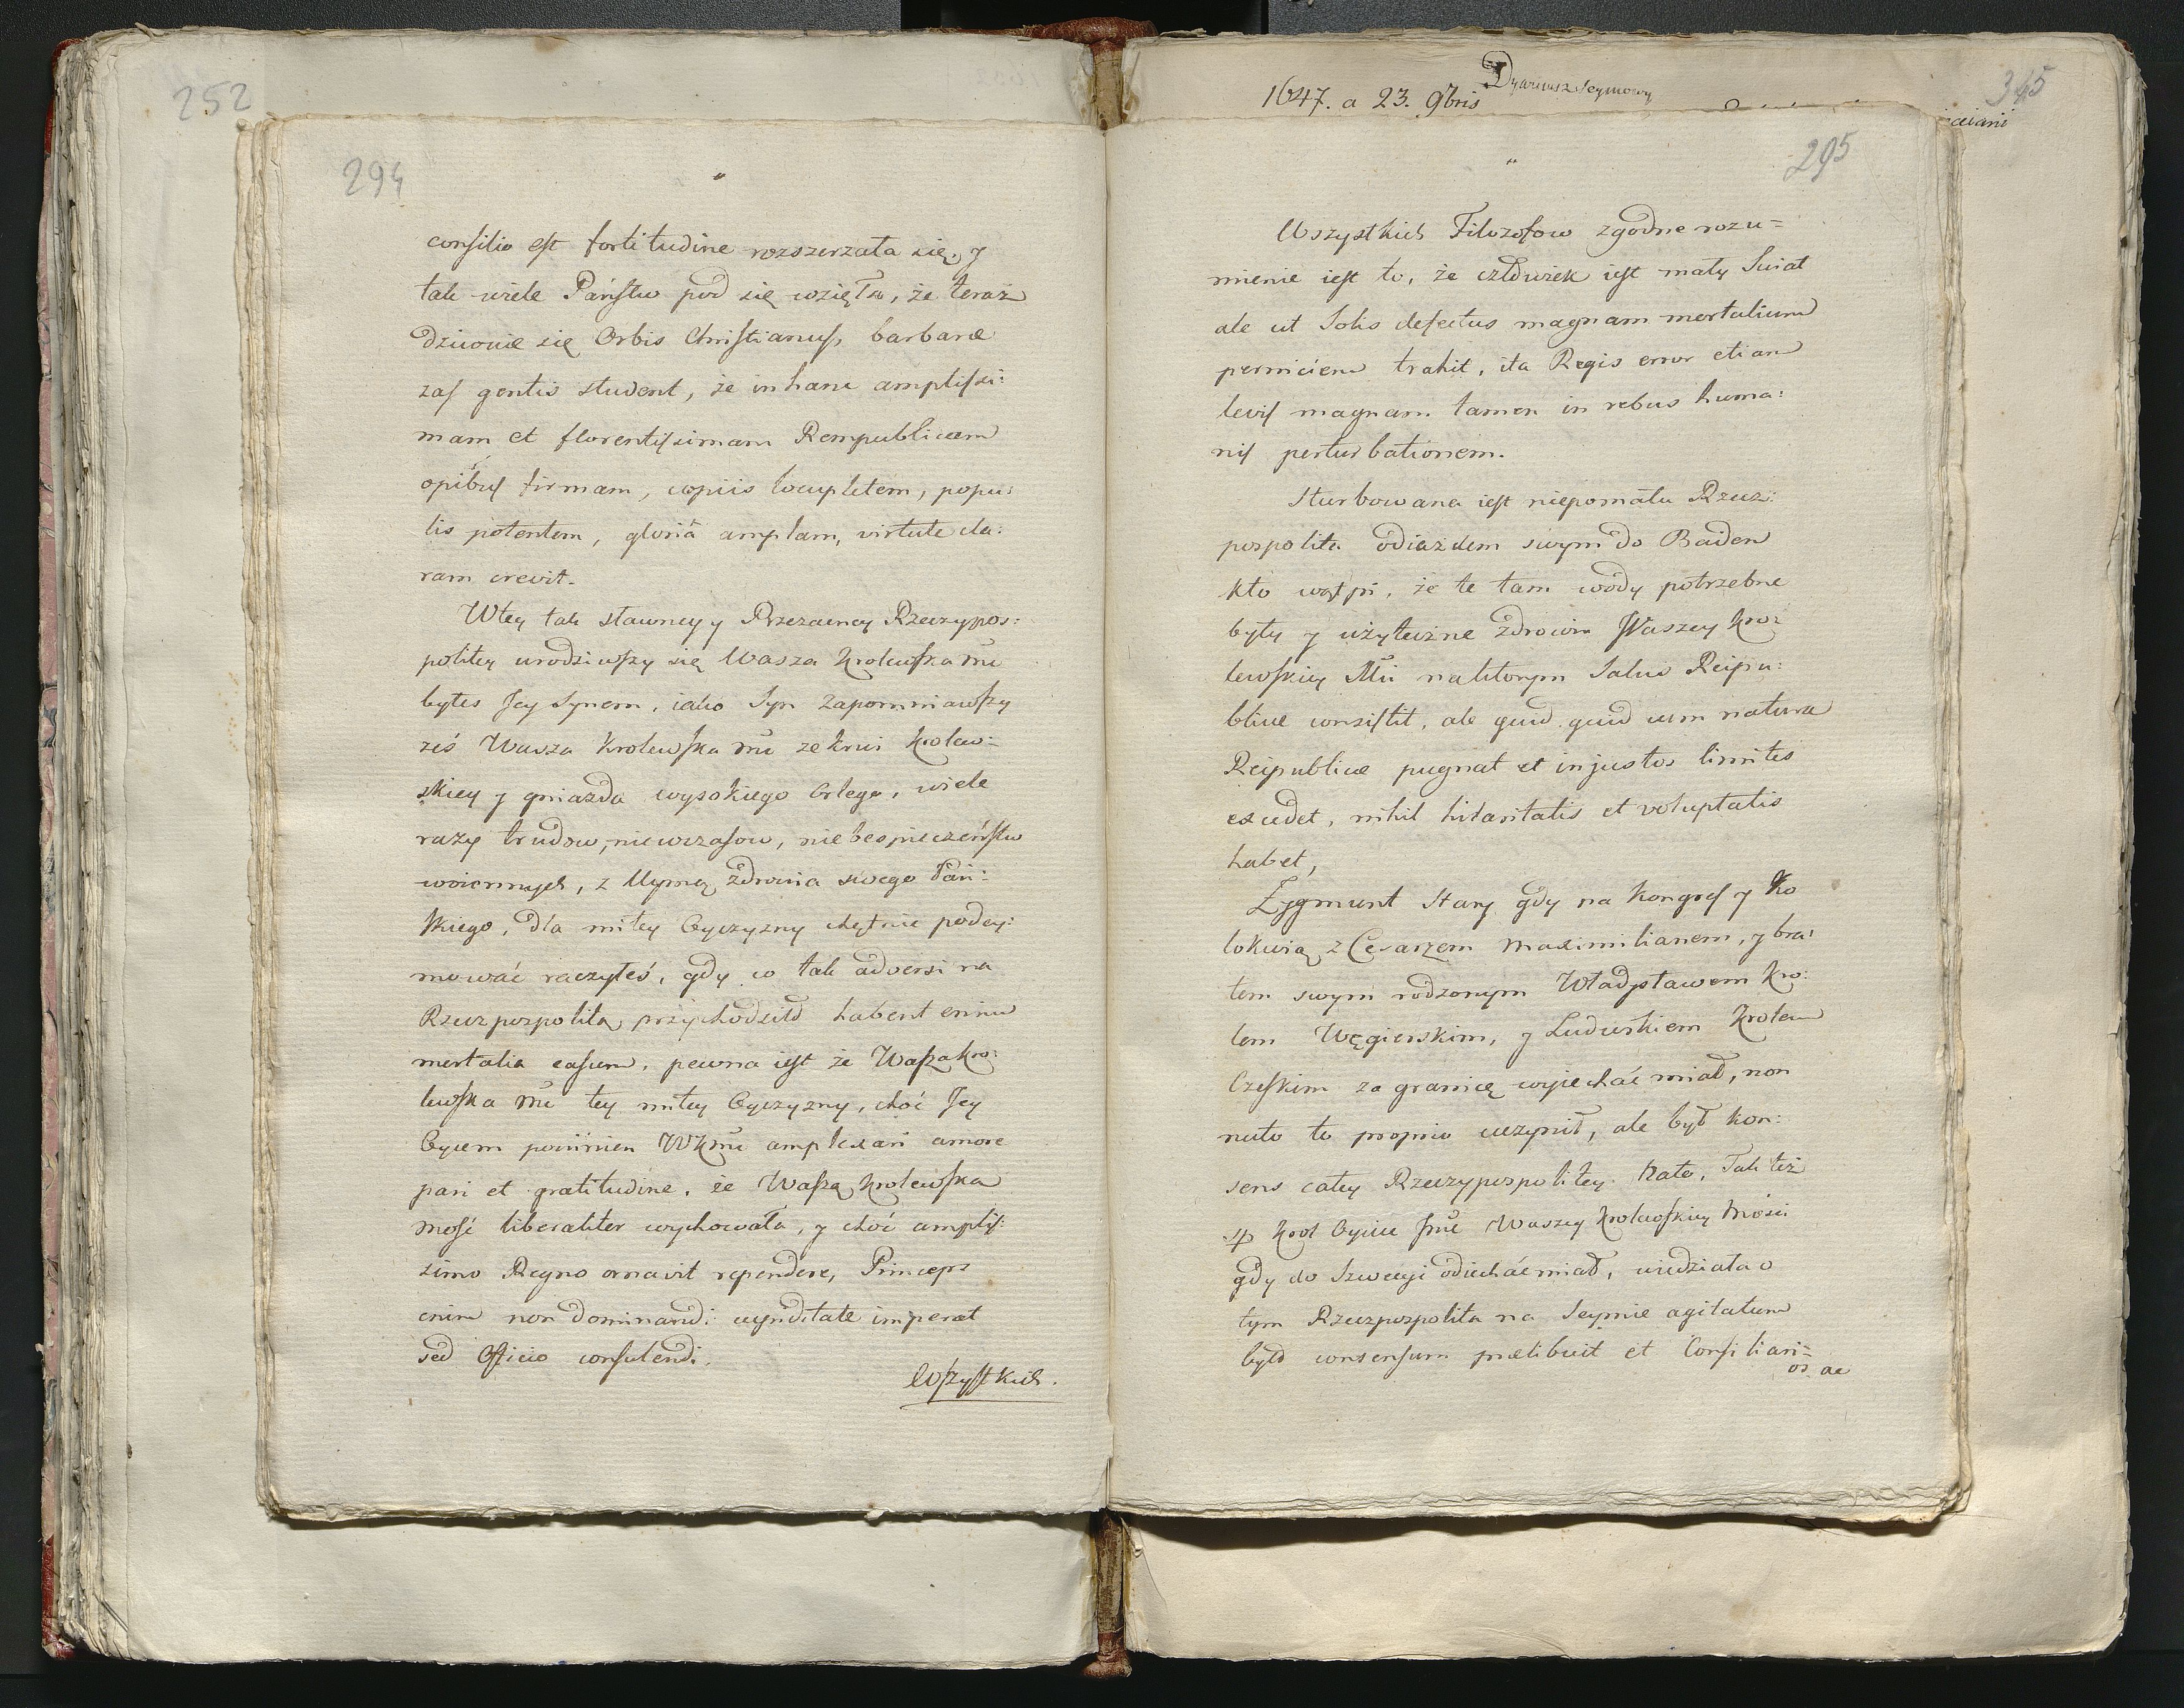 252
294
consilio est fortitudine rozszerzała się, y
tak wiele Państw pod się wzięła, że teraz
dziwuie się Orbis Christianus, barbaræ
zas gentis student, że in hanc amplissi:
mam et florentissimam Rempublicam
opibus firmam, copiis locupletem, popu:
lis potentem, gloriâ amplam, virtute cla:
ram crevit.
Wtey tak sławney y Przezacney Rzeczypos:
politey urodziwszy się Wasza Krolewska Mć
byłes Jey Synem, iako Syn zapomniawszy
żeś Wasza Krolewska Mć ze krwi Krolew:
skiey y gniazda wysokiego Orlego, wiele
razy trudow, niewczasow, niebespieczeństw
woiennych, z Uymą zdrowia swego Pań:
skiego, dla miłey Oyczyzny chętnie podey:
mować raczyłeś, gdy co tak adversi na
Rzeczpospolitą przychodziło habent enim
mortalia casum, pewna iest że Wasza Kro:
lewska Mć tey miłey Oyczyzny, choć Jey
Oycem powinien WKMć amplexari amore
pari et gratitudine, że Waszą Krolewska
Mość liberaliter wychowała, y choć amplis:
simo Regno ornavit rependere, Princeps
enim non dominandi cupiditate imperat
sed Officio consulendi.
Wszystkich.
1647. a 23. 9bris
Dyariusz Seymowy
345
295
Wszystkich Filozofow zgodne rozu=
mienie iest to, że człowiek iest mały Swiat
ale ut Solis defectus magnam mortalium
perniciem trahit, ita Regis error etiam
levis magnam tamen in rebus huma:
nis perturbationem.
Sturbowana iest niepomału Rzecz:
pospolita odiazdem swym do Baden
kto wątpi, że te tam wody potrzebne
były y użyteczne zdrowiu Waszey Kro:
lewskiey Mći na którym Salus Reipu:
blicæ consistit, ale quid quid cum natura
Reipublicæ pugnat et injustos limites
excedet, nihil hilaritatis et voluptatis
habet,
Zygmunt Stary gdy na Kongres y Ko
lokwią z Cesarzem Maximilianem, y bra:
tem swym rodzonym Władysławem Kro:
lem Węgierskim, y Ludwikiem Krolem
Czeskim za granicę wyiechać miał, non
nuto to proprio uczynił, ale był kon:
sens całey Rzeczypospolitey nato, Tak też
SP Krol Oyciec Jmć Waszey Krolewskiey Mości
gdy do Szwecyi odiechać miał, wiedziała o
tym Rzeczpospolita na Seymie agitatum
było consensum præbuit et Consiliari=
os ac